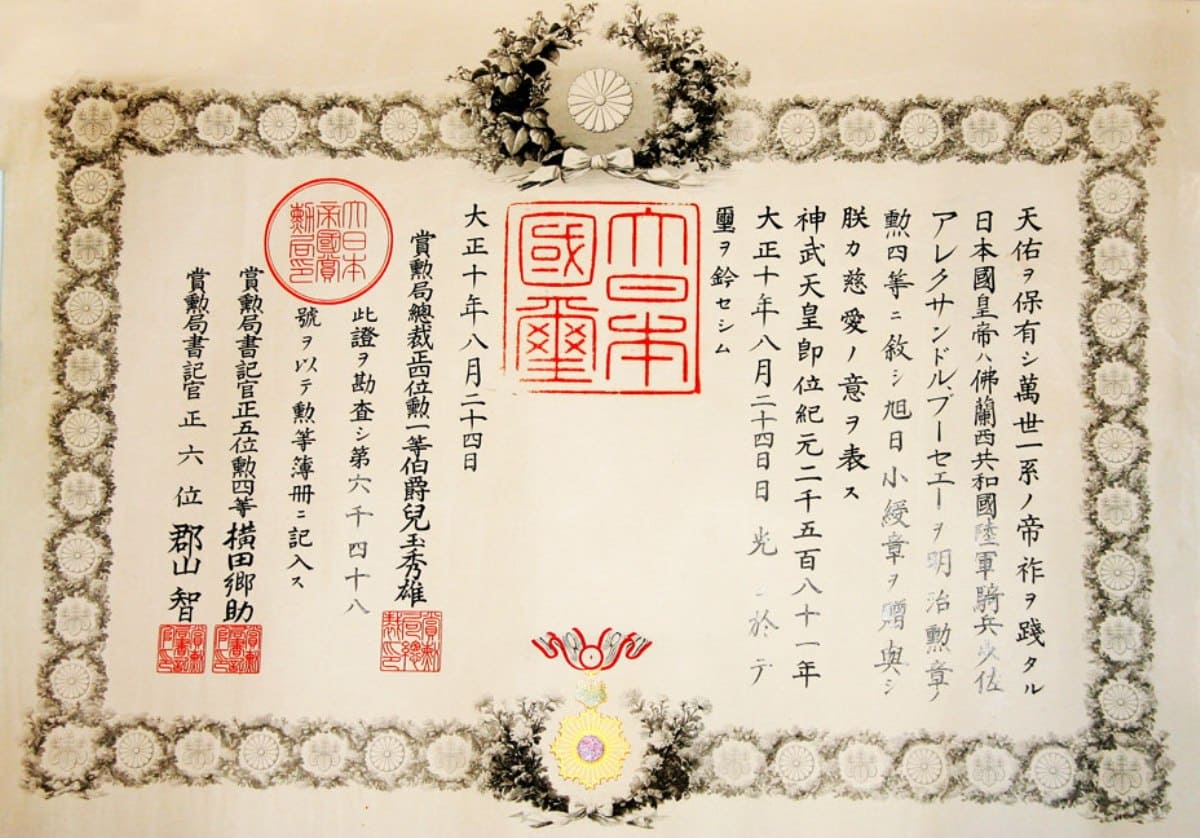 天佑ヲ保有シ萬世一系ノ帝祚ヲ踐タル
日本國皇帝ハ佛蘭西共和國陸軍騎兵少佐
アレクサンドル、ブーセエーヲ明治勲章ノ
勲四等ニ敘シ旭日小綬章ヲ贈與シ
朕カ慈愛ノ意ヲ表ス
神武天皇即位紀元二千五百八十一年
大正十年八月二十四日日光ニ於テ
璽ヲ鈐セシム
大日本
國璽
大正十年八月二十四日
賞勲局總裁正四位勲一等伯爵兒玉秀雄
賞勲局總裁印
大日本帝國賞勲局印
此證ヲ勘査シ第六千四十八
號ヲ以テ勲等簿冊ニ記入ス
賞勲局書記官正五位勲四等横田郷助
賞勲局書記官正六位郡山智